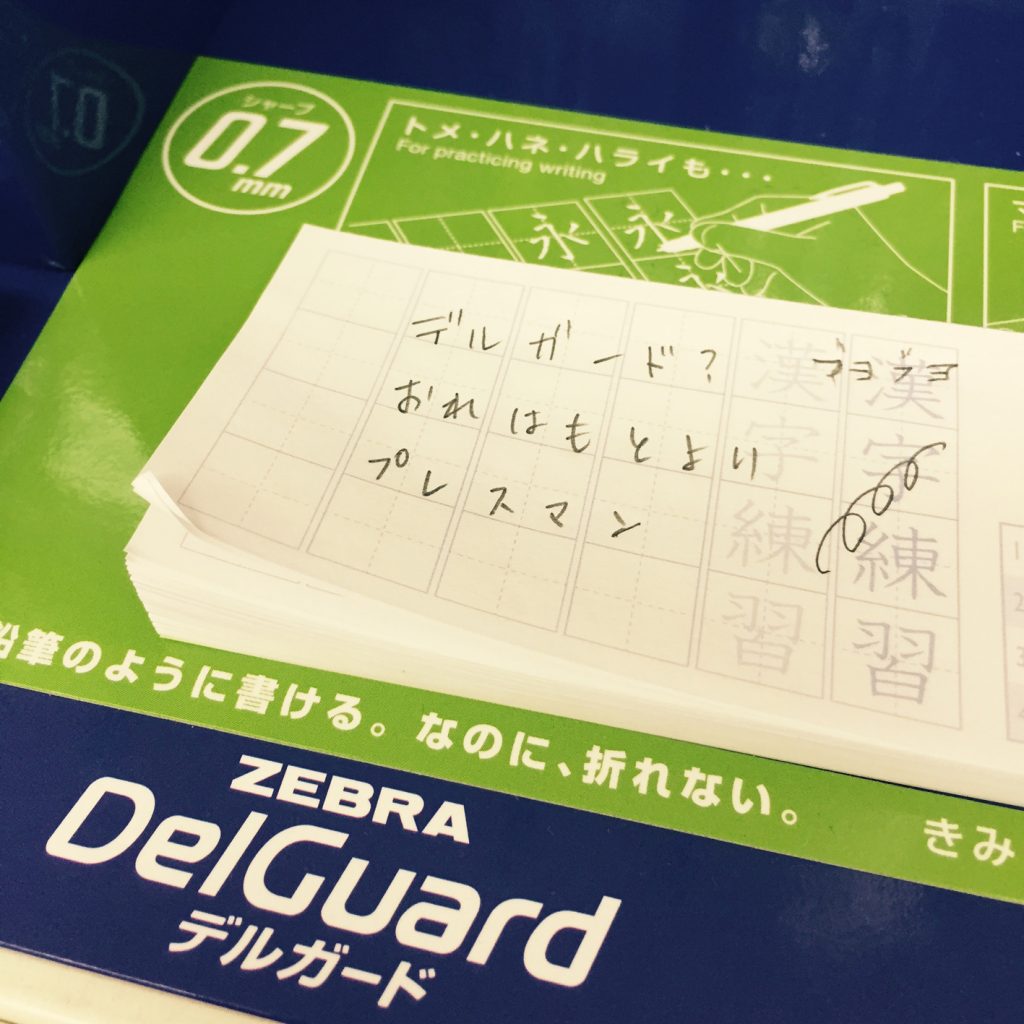 シャープ
0.7
mm
トメ・ハネ・ハライも・・・
For practicing writing
永 永
デルガード? ブヨブヨ
おれはもとより
プレスマン
漢字練習
漢字練習
鉛筆のように書ける。なのに、折れない。
きみ
ZEBRA
DelGuard
デルガード